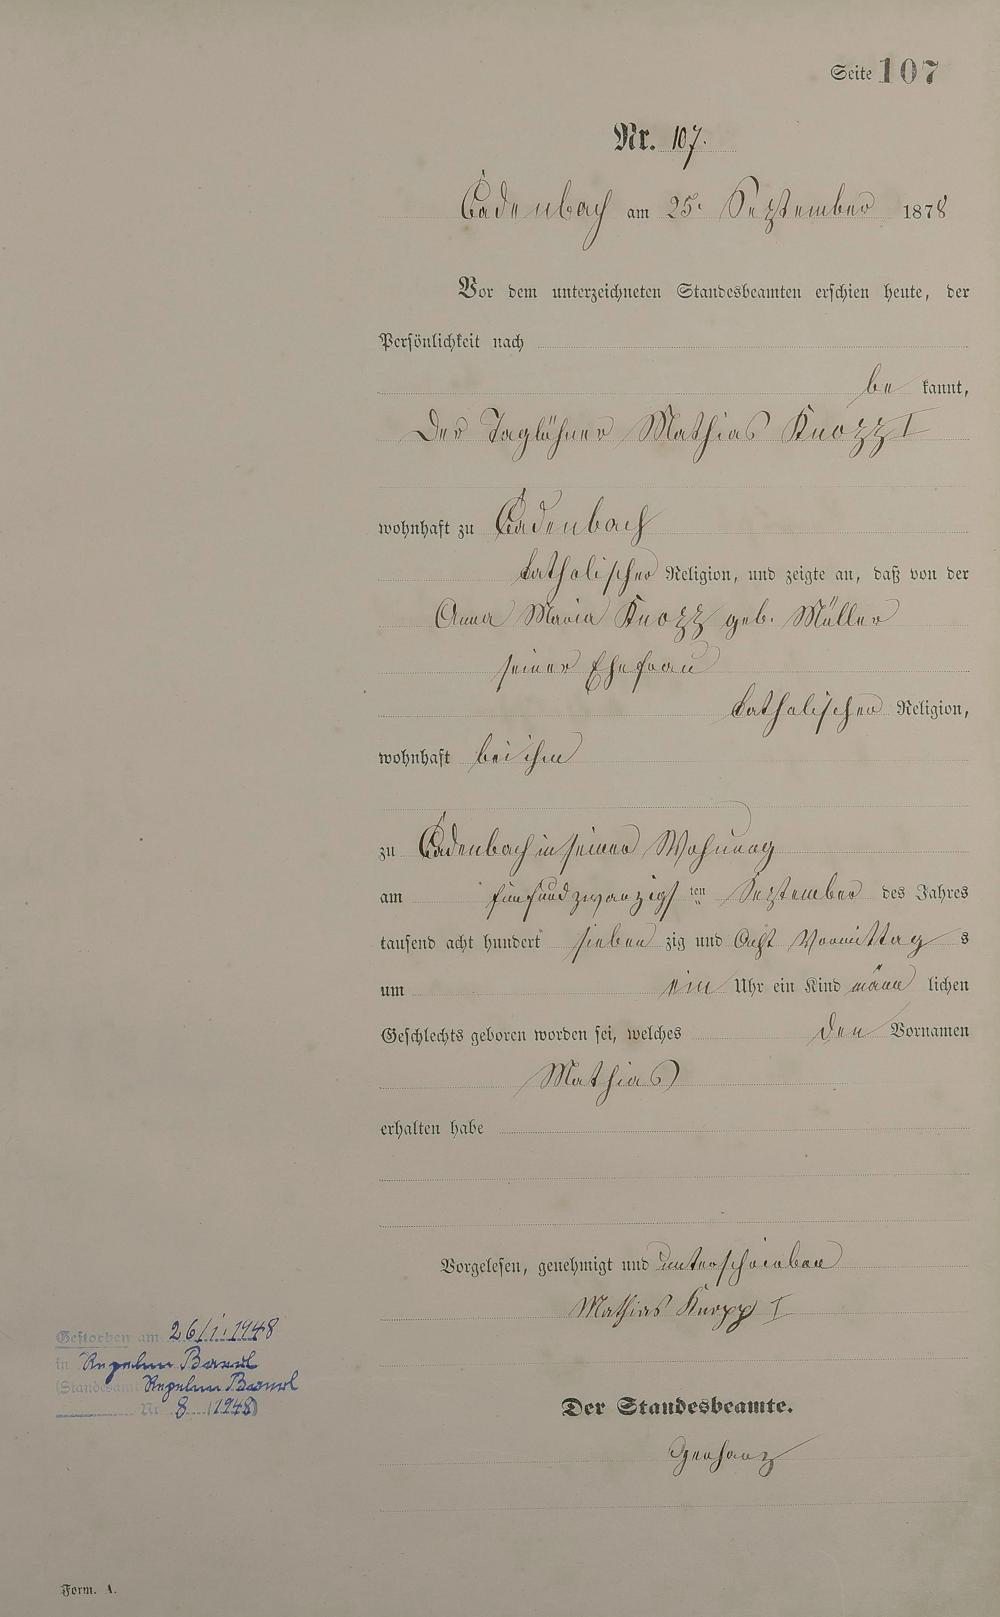 Seite 107
Nr. 107.
Cadenbach am 25. September 1878
Vor dem unterzeichneten Standesbeamten erschien heute, der
Persönlichkeit nach
be kannt,
Der Taglöhner Mathias Knopp I
wohnhaft zu Cadenbach
katholischer Religion, und zeigte an, daß von der
Anna Maria Knopp geb. Müller
seiner Ehefrau
katholischer Religion,
wohnhaft bei ihm
zu Cadenbach in seiner Wohnung
am fünfundzwanzigs ten September des Jahres
tausend acht hundert sieben zig und Acht Vormittag s
um ein Uhr ein Kind männ lichen
Geschlechts geboren worden sei, welches den Vornamen
Mathias
erhalten habe
Vorgelesen, genehmigt und unterschrieben
Mathias Knopp I
Gestorben am 26/1. 1948
in Repelen Baerl
(Standesamt Repelen Baerl
Nr 8 (1948)
Der Standesbeamte.
Form. A.